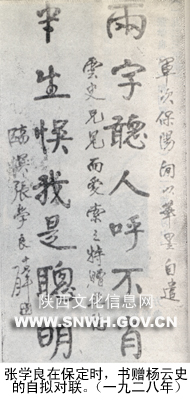 軍次保陽间以筆墨自遣
兩字聽人呼不肖
雲史兄見而愛索之特贈
半生悞我是聰明
臨溟張學良
陕西文化信息网
WWW.SNWH.GOV.CN
张学良在保定时，书赠杨云史
的自拟对联。（一九二八年）